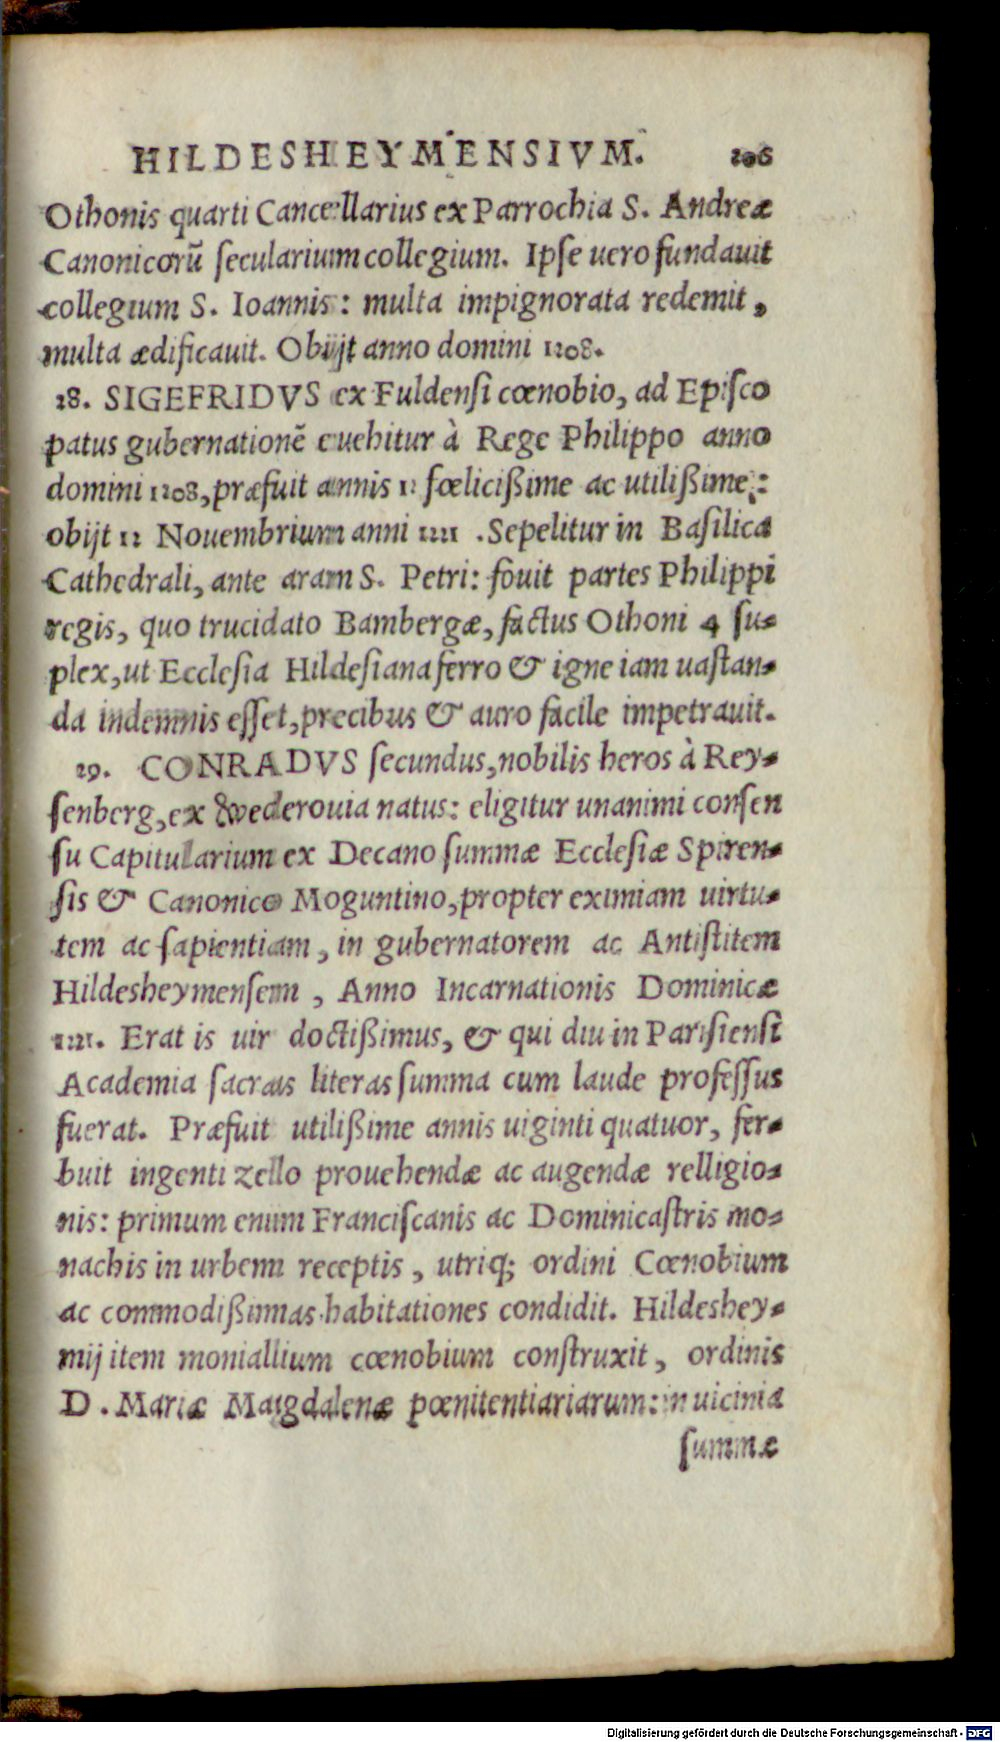 HILDESHEYMENSIVM. 206
Othonis quarti Cancellarius ex Parrochia S. Andreæ
Canonicorū ſecularium collegium. Ipſe uero fundauit
collegium S. Ioannis: multa impignorata redemit,
multa ædificauit. Obijt anno domini 1208.
28. SIGEFRIDVS ex Fuldenſi cœnobio, ad Epiſco
patus gubernationē euehitur à Rege Philippo anno
domini 1208, præfuit annis 12 fœliciſſime ac utiliſſime:
obijt 12 Nouembrium anni 1221. Sepelitur in Baſilica
Cathedrali, ante aram S. Petri: fouit partes Philippi
regis, quo trucidato Bambergæ, factus Othoni 4 ſu-
plex, ut Eccleſia Hildeſiana ferro & igne iam uaſtan-
da indemnis eſſet, precibus & auro facile impetrauit.
29. CONRADVS ſecundus, nobilis heros à Rey-
ſenberg, ex Wederouia natus: eligitur unanimi conſen
ſu Capitularium ex Decano ſummæ Eccleſiæ Spiren-
ſis & Canonico Moguntino, propter eximiam uirtu-
tem ac ſapientiam, in gubernatorem ac Antiſtitem
Hildesheymenſem, Anno Incarnationis Dominicæ
1221. Erat is uir doctißimus, & qui diu in Pariſienſi
Academia ſacras literas ſumma cum laude profeſſus
fuerat. Præfuit utilißime annis uiginti quatuor, fer-
buit ingenti zello prouehendæ ac augendæ relligio-
nis: primum enim Franciſcanis ac Dominicaſtris mo-
nachis in urbem receptis, utriq; ordini Cœnobium
ac commodißimas habitationes condidit. Hildeshey-
mij item moniallium cœnobium conſtruxit, ordinis
D. Mariæ Magdalenæ pœnitentiariarum: in uicinia
ſummæ
Digitalisierung gefördert durch die Deutsche Forschungsgemeinschaft - DFG